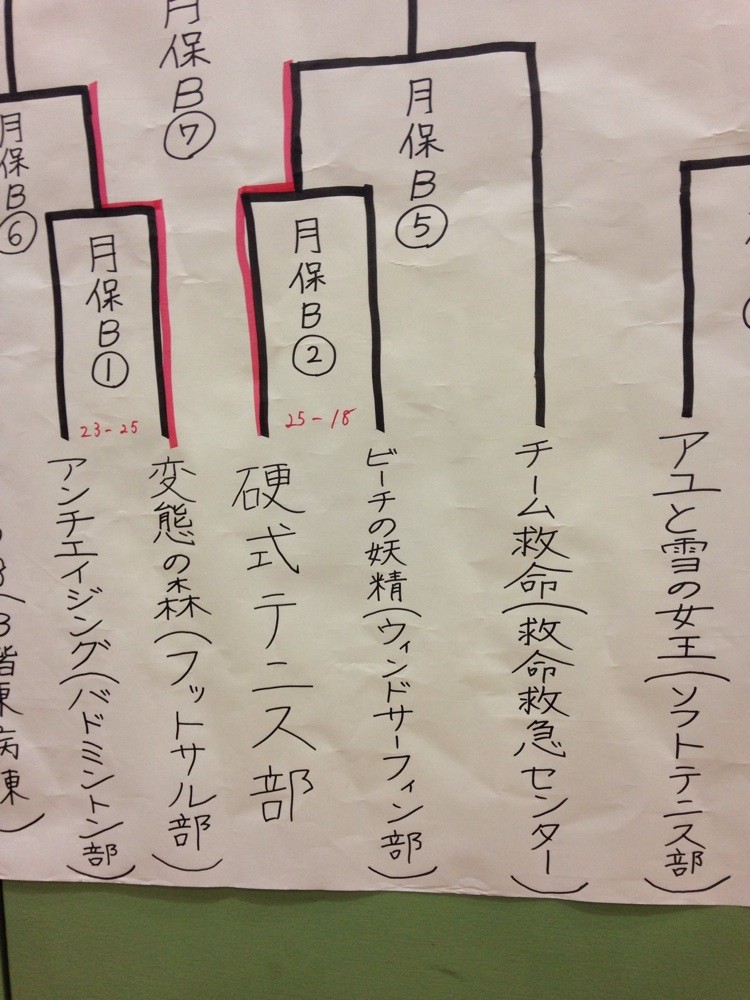 月保B⑦
月保B⑤
月保B⑥
月保B①
月保B②
23-25
25-18
アユと雪の女王(ソフトテニス部)
チーム救命(救命救急センター)
ビーチの妖精(ウィンドサーフィン部)
硬式テニス部
変態の森(フットサル部)
アンチエイジング(バドミントン部)
階東病棟)